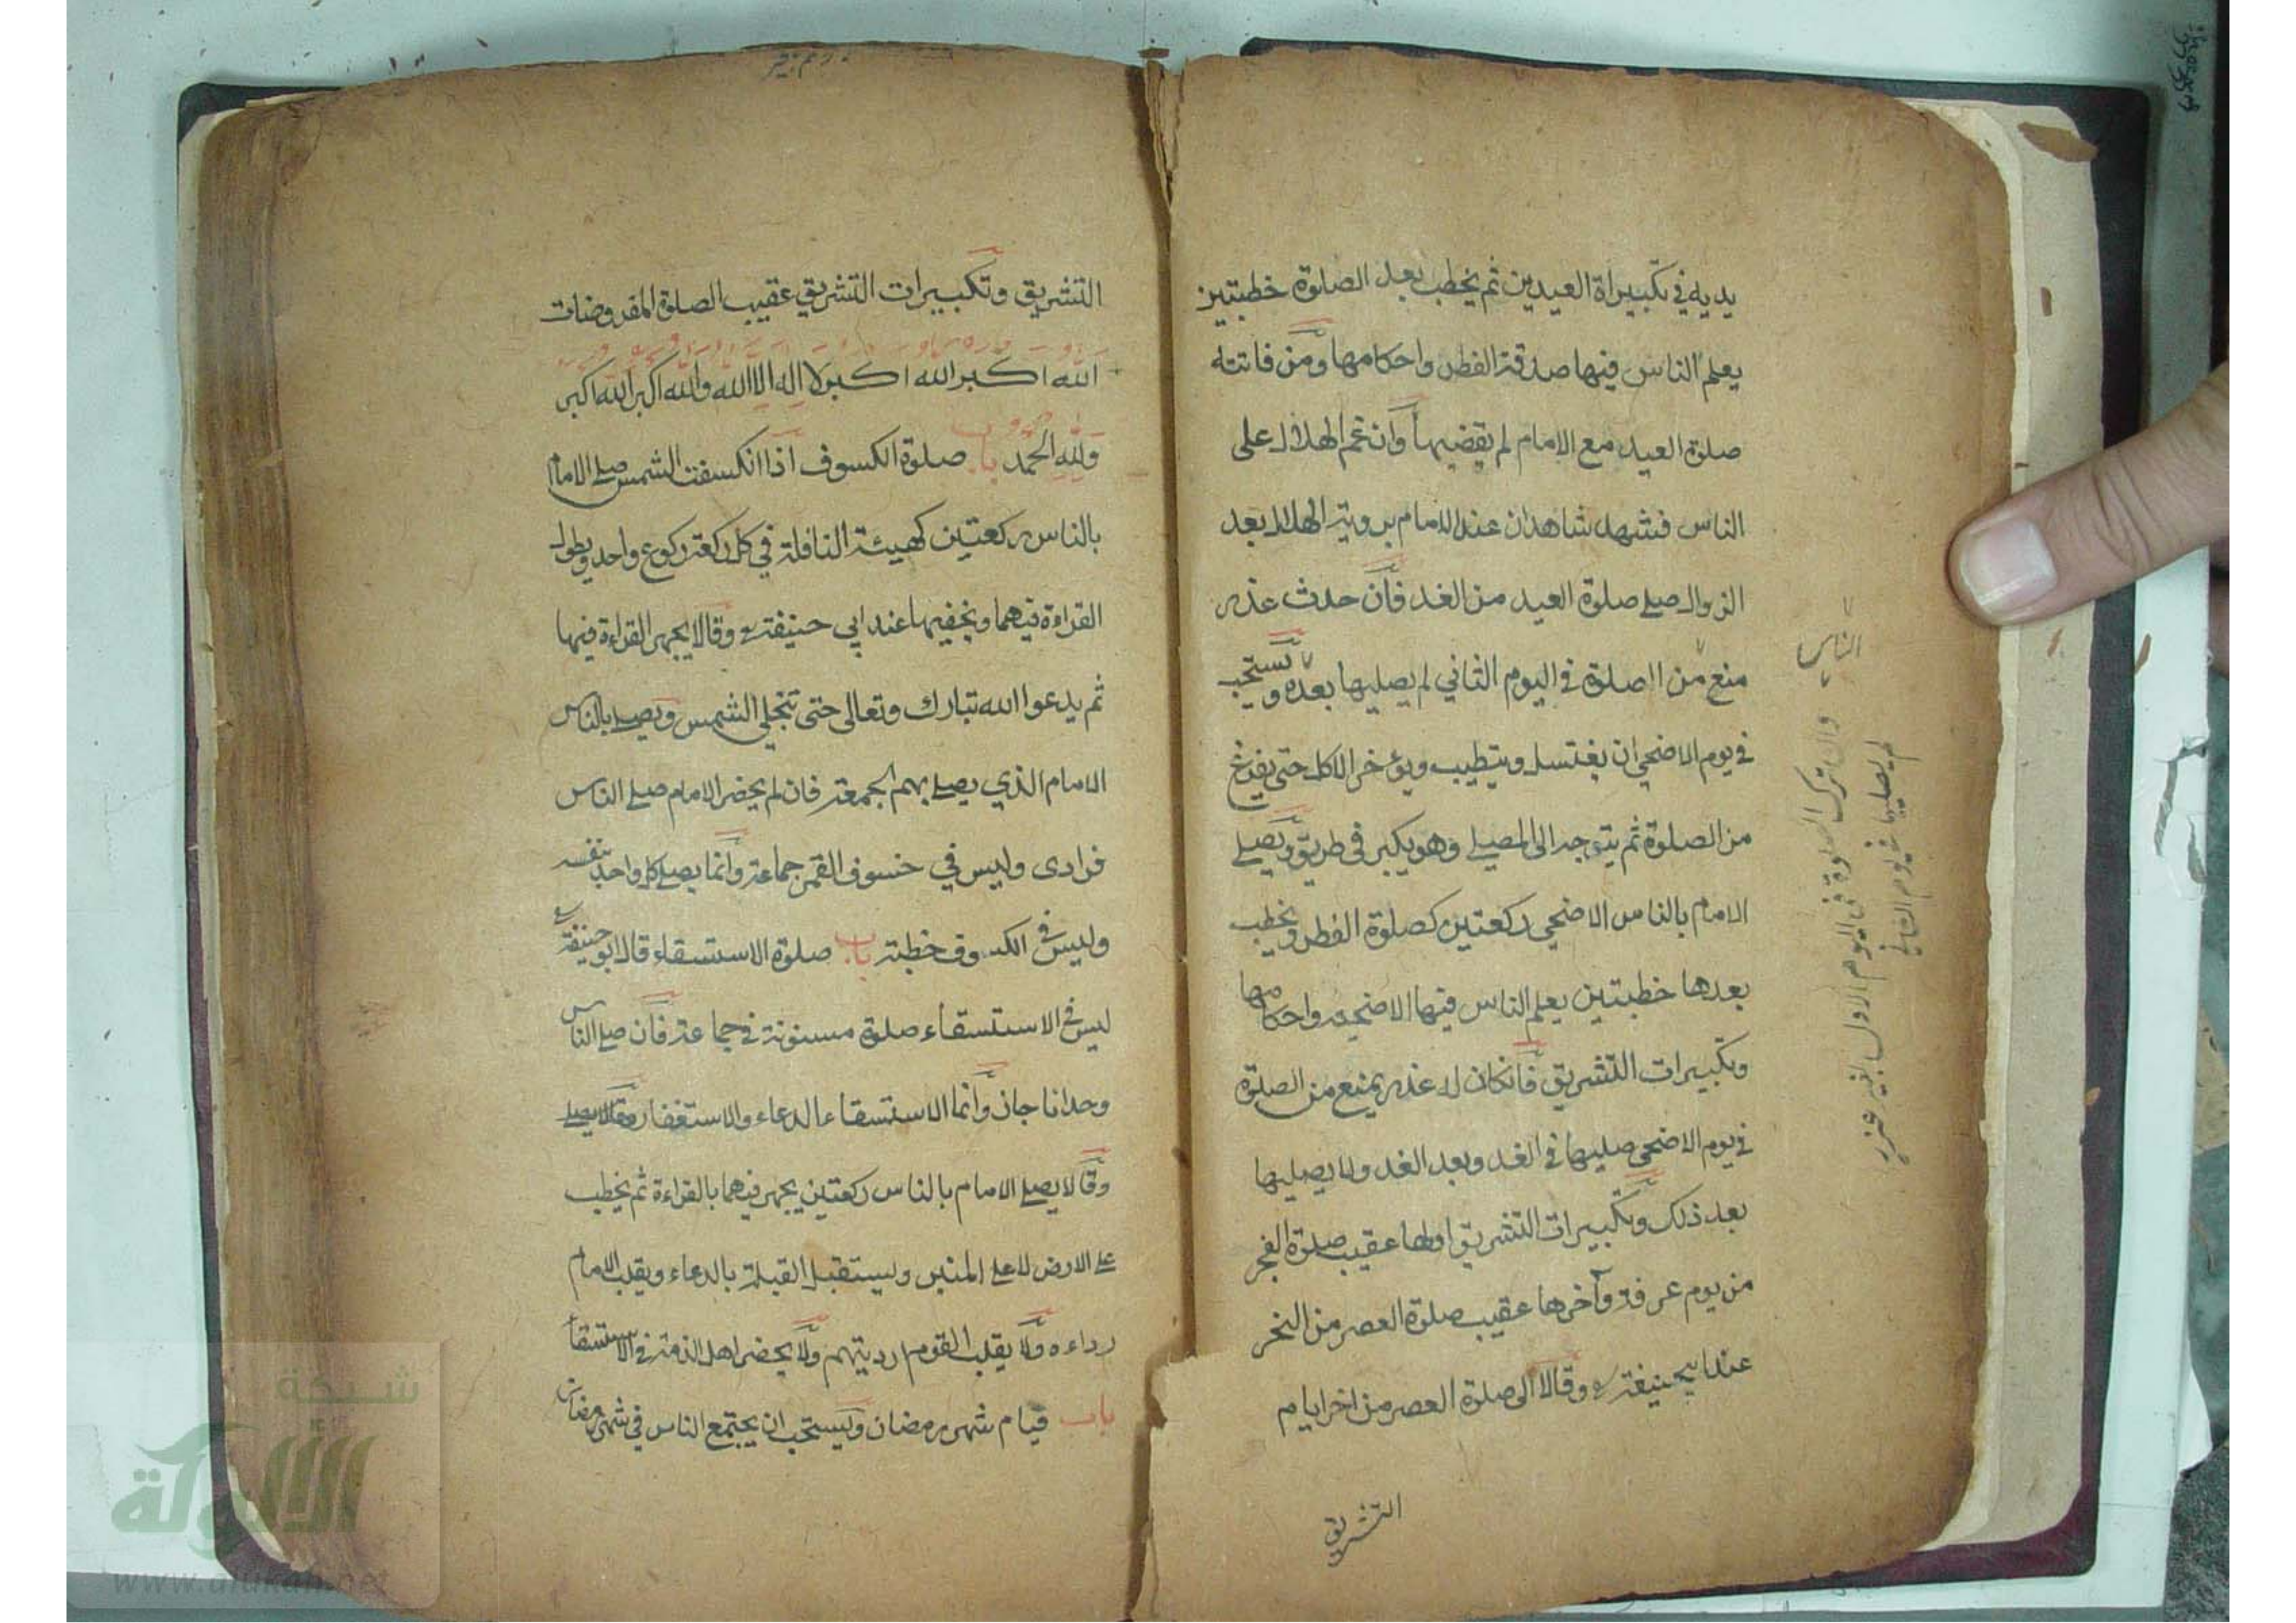 يديه في تكبيراة العيدين ثم يخطب بعد الصلوة خطبتين
يعلم الناس فيها صدقة الفطر واحكامها ومن فاتته
صلوة العيد مع الامام لم يقضيها وان غم الهلال على
الناس فشهد شاهدان عند الامام برويته الهلال بعد
الزوال صلى صلوة العيد من الغد فان حدث عذر
منع من الصلوة في اليوم الثاني لم يصليها بعده ويستحب
في يوم الاضحى ان يغتسل ويتطيب ويؤخر الاكل حتى يفرغ
من الصلوة ثم يتوجه الى المصلى وهو يكبر في طريق ويصلى
الامام بالناس الاضحى ركعتين كصلوة الفطر ويخطب
بعدها خطبتين يعلم الناس فيها الاضحية واحكامها
وتكبيرات التشريق فانكان له عذر يمنع من الصلوة
في يوم الاضحى صليها في الغد وبعد الغد ولا يصليها
بعد ذلك وتكبيرات التشريق اولها عقيب صلوة الفجر
من يوم عرفة وآخرها عقيب صلوة العصر من النحر
عند ابيحنيفة وقالا الى صلوة العصر من اخر ايام
التشريق
الناس
وان ترك الصلوة في اليوم الاول بغير عذر
لم يصليها في اليوم الثاني
التشريق وتكبيرات التشريق عقيب الصلوة المفروضات
الله اكبر الله اكبر لا اله الا الله والله اكبر الله اكبر
ولله الحمد باب صلوة الكسوف اذا انكسفت الشمس صلى الامام
بالناس ركعتين كهيئة النافلة في كل ركعة ركوع واحد ويطول
القراءة فيهما ويخفيها عند ابي حنيفة وقالا يجهر القراءة فيها
ثم يدعوا الله تبارك وتعالى حتى تنجلي الشمس ويصلى بالناس
الامام الذي يصلى بهم الجمعة فان لم يحضر الامام صلى الناس
فرادى وليس في خسوف القمر جماعة وانما يصلى كل واحد بنفسه
وليس في الكسوف خطبة باب صلوة الاستسقاء قال ابو حنيفة
ليس في الاستسقاء صلوة مسنونة في جماعة فان صلى الناس
وحدانا جاز وانما الاستسقاء الدعاء والاستغفار وقالا يصلى
وقالا يصلى الامام بالناس ركعتين يجهر فيهما بالقراءة ثم يخطب
على الارض لا على المنبر وليستقبل القبلة بالدعاء ويقلب الامام
رداءه ولا يقلب القوم ارديتهم ولا يحضر اهل الذمة في الاستسقاء
باب قيام شهر رمضان ويستحب ان يجتمع الناس في شهر رمضان
شبكة
الألوكة
www.alukah.net